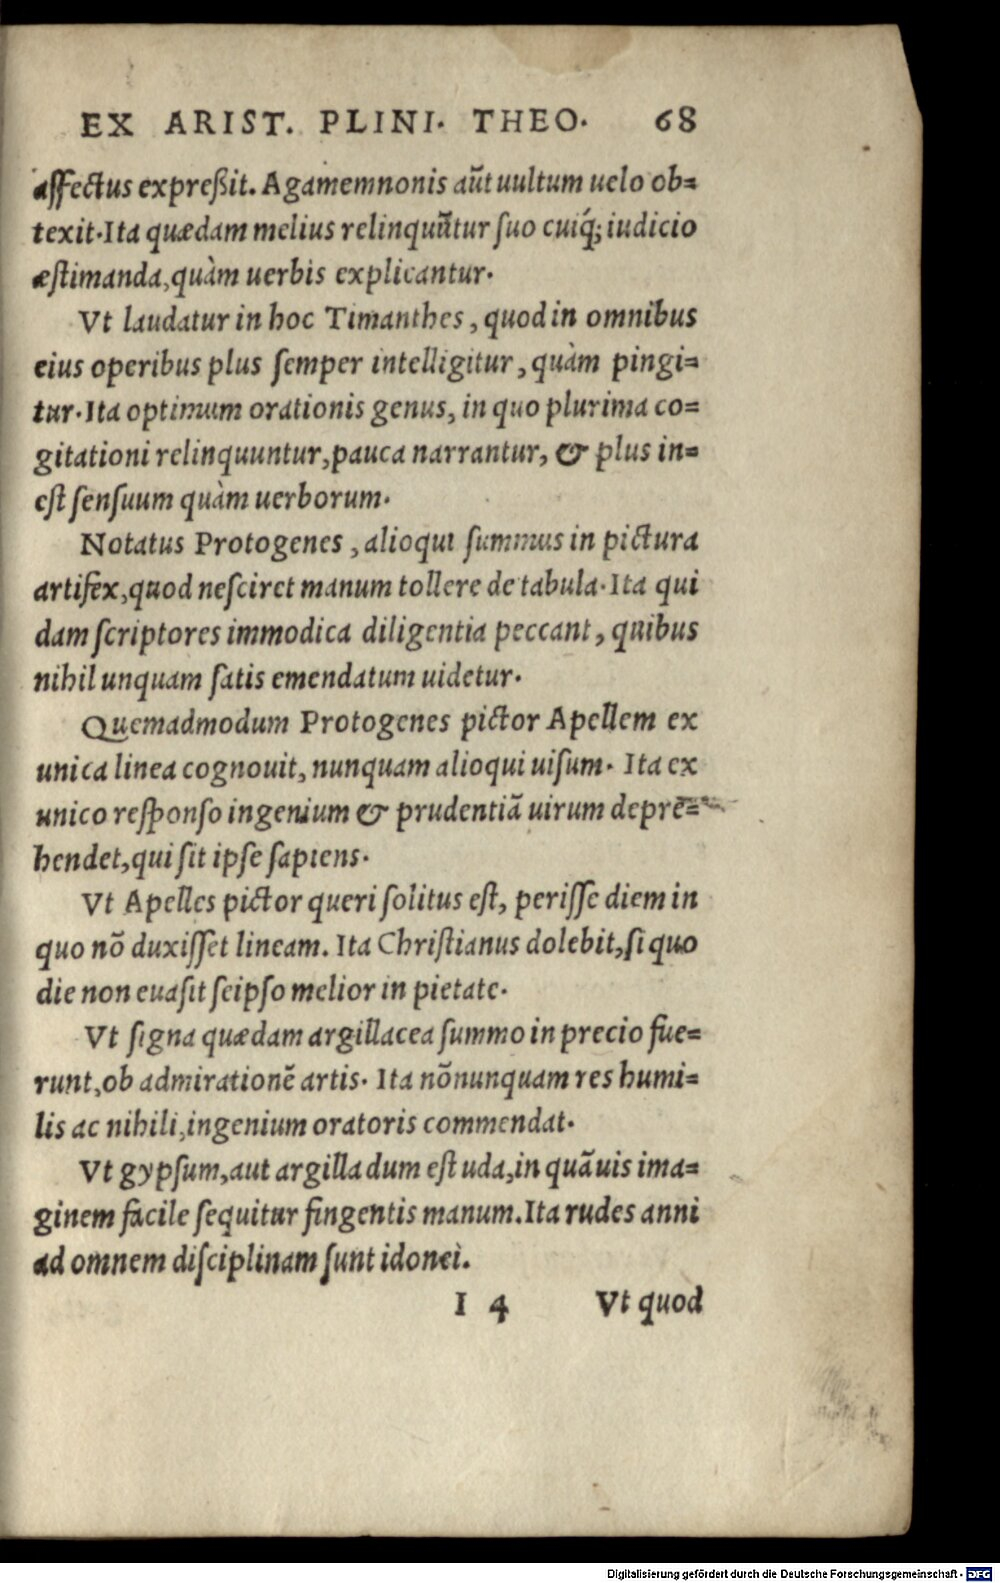 EX ARIST. PLINI. THEO. 68
affectus expreßit. Agamemnonis aūt uultum uelo ob=
texit. Ita quædam melius relinquūtur suo cuiq́; iudicio
æstimanda, quàm uerbis explicantur.
Vt laudatur in hoc Timanthes, quod in omnibus
eius operibus plus semper intelligitur, quàm pingi=
tur. Ita optimum orationis genus, in quo plurima co=
gitationi relinquuntur, pauca narrantur, & plus in=
est sensuum quàm uerborum.
Notatus Protogenes, alioqui summus in pictura
artifex, quod nesciret manum tollere de tabula. Ita qui
dam scriptores immodica diligentia peccant, quibus
nihil unquam satis emendatum uidetur.
Quemadmodum Protogenes pictor Apellem ex
unica linea cognouit, nunquam alioqui uisum. Ita ex
unico responso ingenium & prudentiā uirum deprē=
hendet, qui sit ipse sapiens.
Vt Apelles pictor queri solitus est, perisse diem in
quo nō duxisset lineam. Ita Christianus dolebit, si quo
die non euasit seipso melior in pietate.
Vt signa quædam argillacea summo in precio fue=
runt, ob admirationē artis. Ita nōnunquam res humi=
lis ac nihili, ingenium oratoris commendat.
Vt gypsum, aut argilla dum est uda, in quāuis ima=
ginem facile sequitur fingentis manum. Ita rudes anni
ad omnem disciplinam sunt idonei.
I 4 Vt quod
Digitalisierung gefördert durch die Deutsche Forschungsgemeinschaft - DFG